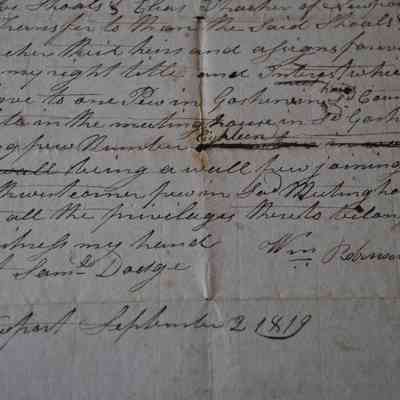 Shoals & Elias Thacher of Newport
Transfer to than the Said Shoals
their heirs and assigns forever
my right title and Interest which
have
give to one Pew in Goshen in Sd Coun
in the meeting house in Sd Gosh
pew Number Eighteen
being a wall pew joining
thewest corner pew in Said Meeting ho
all the privilages thereto belong
itness my hand
Saml. Dodge Wm Robinson
wport September 2 1819